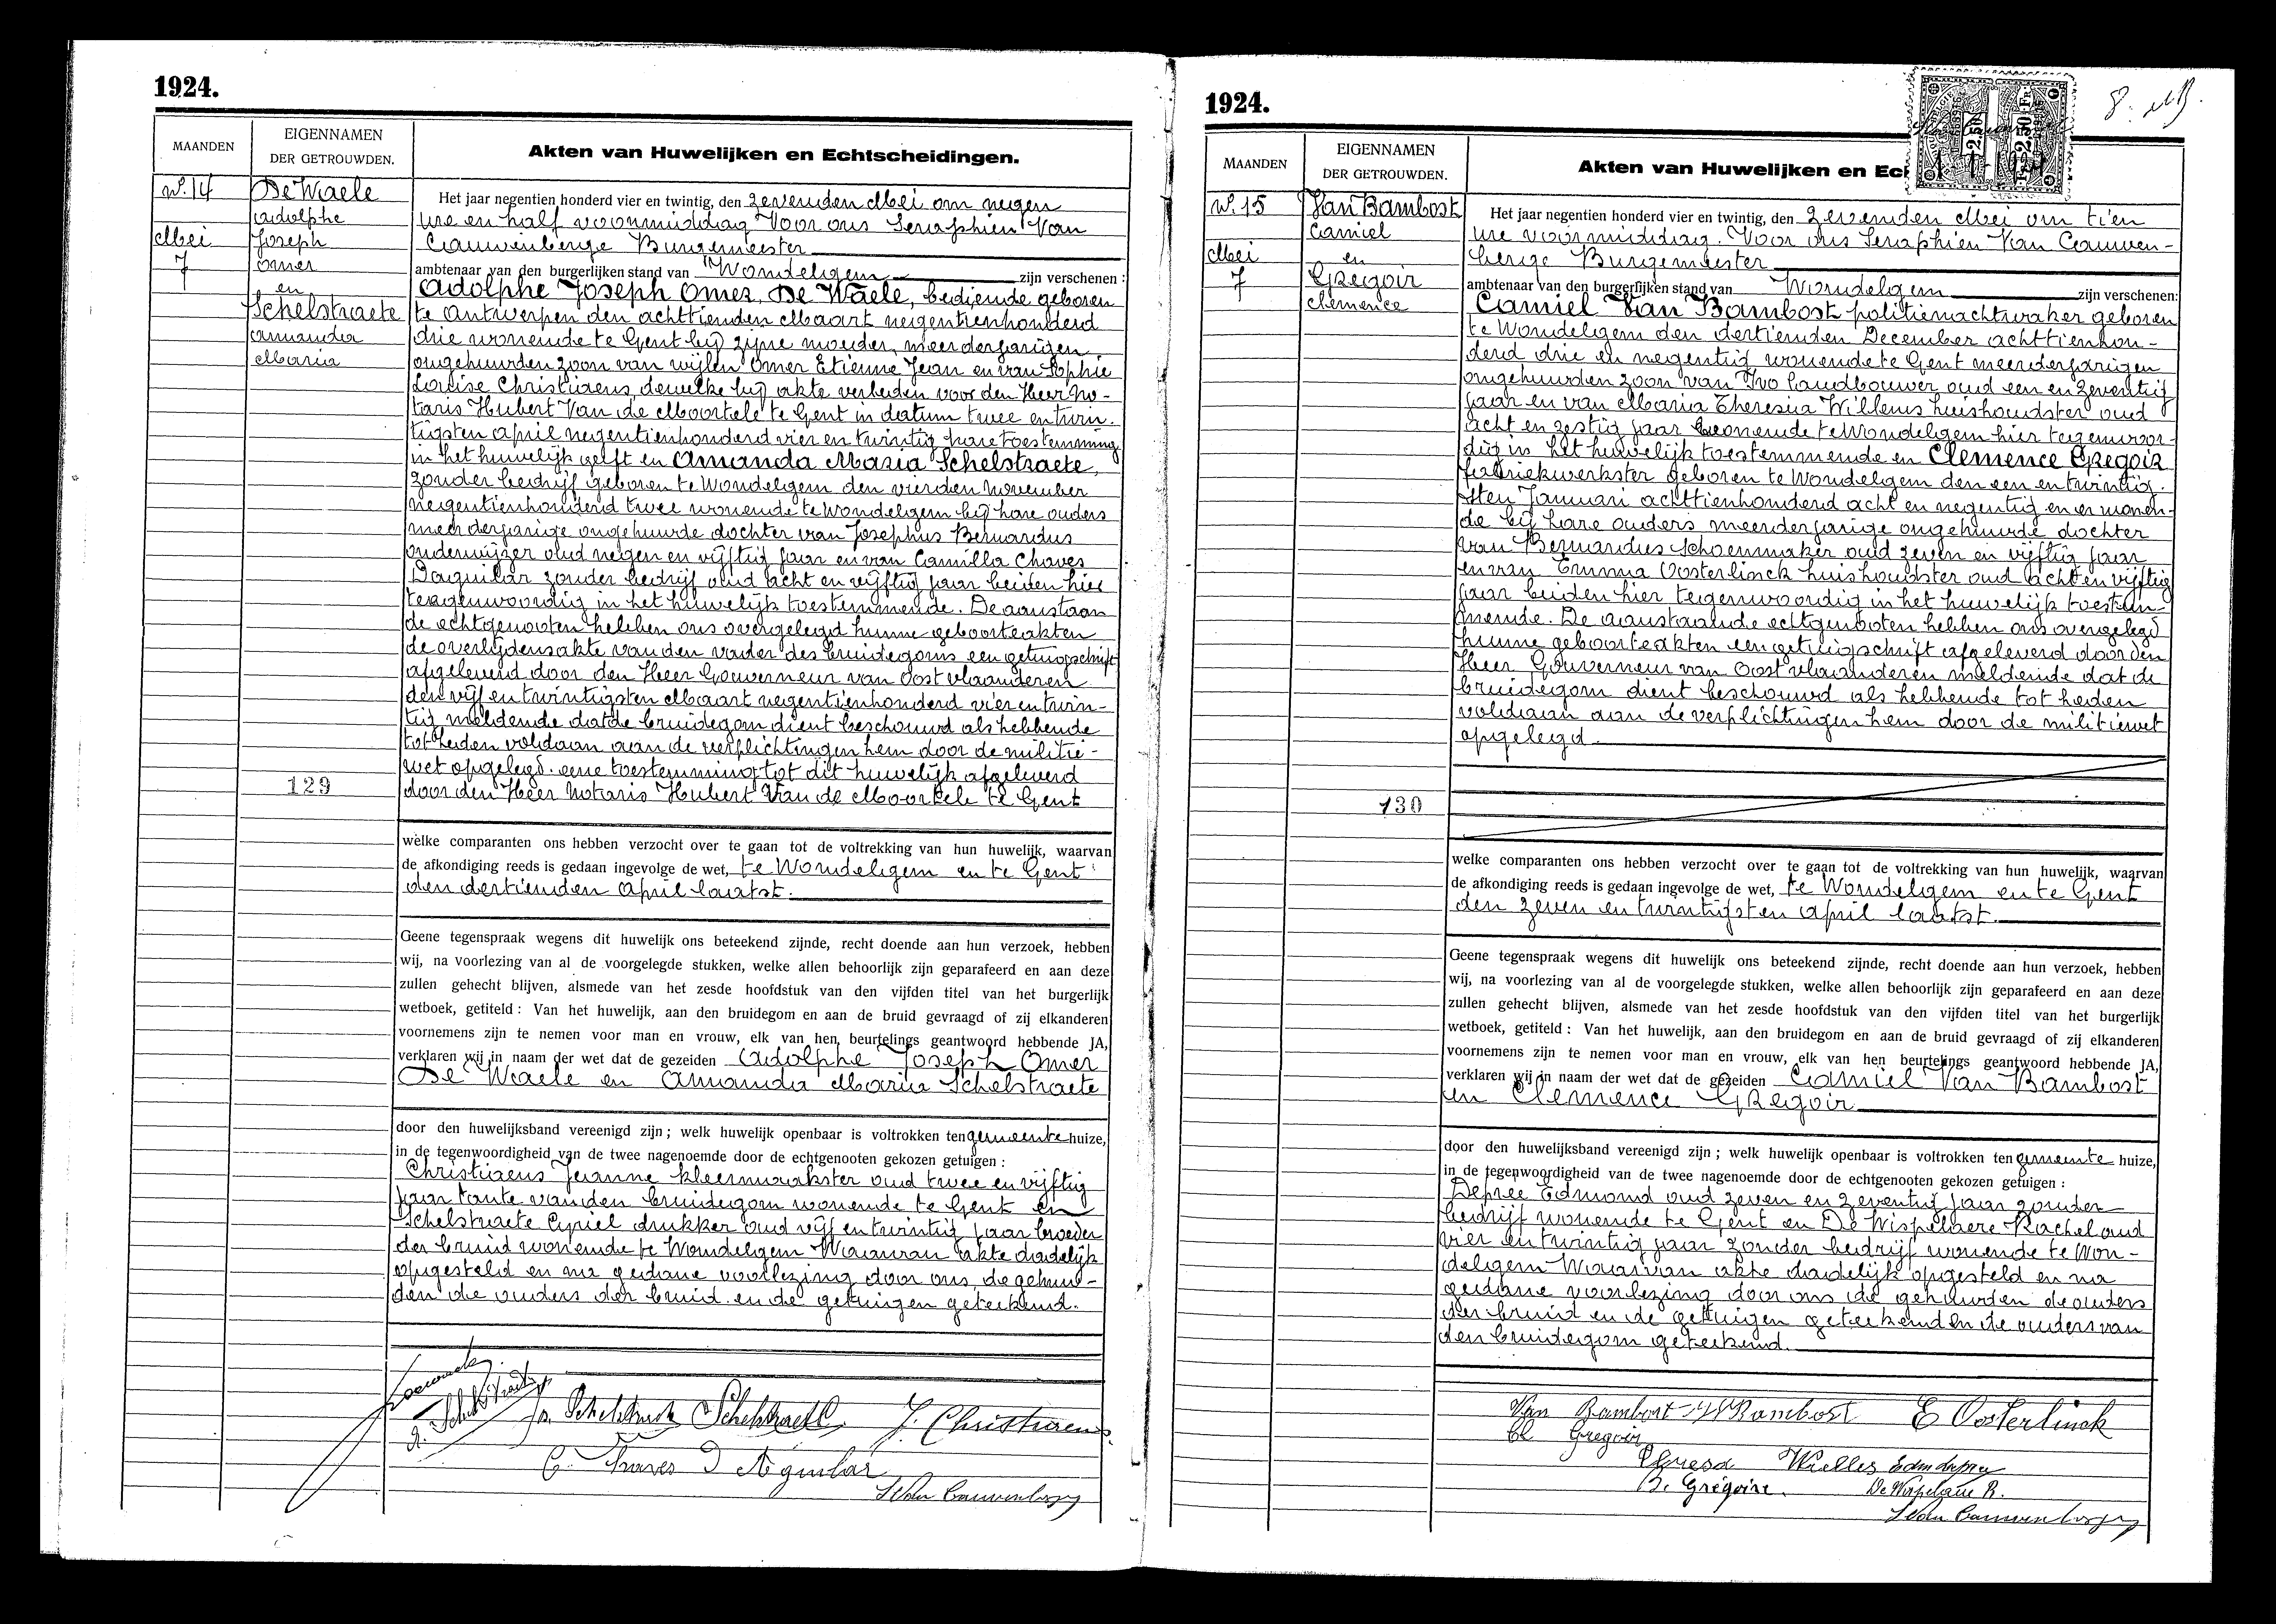 1924.
MAANDEN
EIGENNAMEN
DER GETROUWDEN.
Akten van Huwelijken en Echtscheidingen.
N° 14
Mei
7
De Waele
Adolphe
Joseph
Omer
en
Schelstraete
Amanda
Maria
129
Het jaar negentien honderd vier en twintig, den zevenden Mei om negen
ure en half voormiddag Voor ons Seraphien Van
Cauwenberge Burgemeester
ambtenaar van den burgerlijken stand van Wondelgem zijn verschenen :
Adolphe Joseph Omer De Waele, bediende geboren
te Antwerpen den achttienden Maart negentienhonderd
drie wonende te Gent bij zijne moeder, meerderjarigen
ongehuwden zoon van wijlen Omer Etienne Jean en van Sophie
Louise Christiaens, dewelke bij akte verleden voor den Heer No-
taris Hubert Van de Moortele te Gent in datum twee en twin-
tigsten april negentienhonderd vier en twintig hare toestemming
in het huwelijk geeft en Amanda Maria Schelstraete,
zonder bedrijf geboren te Wondelgem den vierden November
negentienhonderd twee wonende te Wondelgem bij hare ouders
meerderjarige ongehuwde dochter van Josephus Bernardus
onderwijzer oud negen en vijftig jaar en van Camilla Chaves
Daguilar zonder bedrijf oud acht en vijftig jaar beiden hier
tegenwoordig in het huwelijk toestemmende. De aanstaan
de echtgenooten hebben ons overgelegd hunne geboorteakten
de overlijdensakte van den vader des bruidegoms een getuigschrift
afgeleverd door den Heer Gouverneur van Oost vlaanderen
den vijf en twintigsten Maart negentienhonderd vier en twin-
tig meldende dat de bruidegom dient beschouwd als hebbende
tot heden voldaan aan de verplichtingen hem door de militie-
wet opgelegd. eene toestemming tot dit huwelijk afgeleverd
door den Heer Notaris Hubert Van de Moortele te Gent
welke comparanten ons hebben verzocht over te gaan tot de voltrekking van hun huwelijk, waarvan
de afkondiging reeds is gedaan ingevolge de wet, te Wondelgem en te Gent
den dertienden april laatst.
Geene tegenspraak wegens dit huwelijk ons beteekend zijnde, recht doende aan hun verzoek, hebben
wij, na voorlezing van al de voorgelegde stukken, welke allen behoorlijk zijn geparafeerd en aan deze
zullen gehecht blijven, alsmede van het zesde hoofdstuk van den vijfden titel van het burgerlijk
wetboek, getiteld : Van het huwelijk, aan den bruidegom en aan de bruid gevraagd of zij elkanderen
voornemens zijn te nemen voor man en vrouw, elk van hen beurtelings geantwoord hebbende JA,
verklaren wij in naam der wet dat de gezeiden Adolphe Joseph Omer
De Waele en Amanda Maria Schelstraete
door den huwelijksband vereenigd zijn ; welk huwelijk openbaar is voltrokken ten gemeente huize,
in de tegenwoordigheid van de twee nagenoemde door de echtgenooten gekozen getuigen :
Christiaens Jeanne kleermaakster oud twee en vijftig
jaar tante van den bruidegom wonende te Gent en
Schelstraete Cyriel drukker oud vijf en twintig jaar broeder
der bruid wonende te Wondelgem Waarvan akte dadelijk
opgesteld en na gedane voorlezing door ons, de gehuw-
den de ouders der bruid en de getuigen geteekend.
J. Christiaens
C. Chaves D'Aguilar
S Van Cauwenberge
1924.
8. MB.
MAANDEN
EIGENNAMEN
DER GETROUWDEN.
Akten van Huwelijken en Ech
Fr 2.50
Fr 2.50 Fr
N° 15
Mei
7
Van Bambost
Camiel
en
Gregoir
Clemence
130
Het jaar negentien honderd vier en twintig, den zevenden Mei om tien
ure voormiddag. Voor ons Seraphien Van Cauwen-
berge Burgemeester
ambtenaar van den burgerlijken stand van Wondelgem zijn verschenen:
Camiel Van Bambost politienachtwaker geboren
te Wondelgem den dertienden December achttienhon-
derd drie en negentig wonende te Gent meerderjarigen
ongehuwden zoon van Ivo landbouwer oud een en zeventig
jaar en van Maria Theresia Willems huishoudster oud
acht en zestig jaar wonende te Wondelgem hier tegenwoor-
dig in het huwelijk toestemmende en Clemence Gregoir
fabriekwerkster geboren te Wondelgem den een en twintig-
sten Januari achttienhonderd acht en negentig en er wonen-
de bij hare ouders meerderjarige ongehuwde dochter
van Bernardus schoenmaker oud zeven en vijftig jaar
en van Emma Oosterlinck huishoudster oud acht en vijftig
jaar beiden hier tegenwoordig in het huwelijk toestem-
mende. De aanstaande echtgenooten hebben ons overgelegd
hunne geboorteakten een getuigschrift afgeleverd door den
Heer Gouverneur van Oost vlaanderen meldende dat de
bruidegom dient beschouwd als hebbende tot heden
voldaan aan de verplichtingen hem door de militiewet
opgelegd.
welke comparanten ons hebben verzocht over te gaan tot de voltrekking van hun huwelijk, waarvan
de afkondiging reeds is gedaan ingevolge de wet, te Wondelgem en te Gent
den zeven en twintigsten april laatst.
Geene tegenspraak wegens dit huwelijk ons beteekend zijnde, recht doende aan hun verzoek, hebben
wij, na voorlezing van al de voorgelegde stukken, welke allen behoorlijk zijn geparafeerd en aan deze
zullen gehecht blijven, alsmede van het zesde hoofdstuk van den vijfden titel van het burgerlijk
wetboek, getiteld : Van het huwelijk, aan den bruidegom en aan de bruid gevraagd of zij elkanderen
voornemens zijn te nemen voor man en vrouw, elk van hen beurtelings geantwoord hebbende JA,
verklaren wij in naam der wet dat de gezeiden Camiel Van Bambost
en Clemence Gregoir
door den huwelijksband vereenigd zijn ; welk huwelijk openbaar is voltrokken ten gemeente huize,
in de tegenwoordigheid van de twee nagenoemde door de echtgenooten gekozen getuigen :
Depree Edmond oud zeven en zeventig jaar zonder
bedrijf wonende te Gent en De Wispelaere Rachel oud
vier en twintig jaar zonder bedrijf wonende te Won-
delgem Waarvan akte dadelijk opgesteld en na
gedane voorlezing door ons de gehuwden de ouders
der bruid en de getuigen geteekend en de ouders van
den bruidegom geteekend.
Van Bambost E Oosterlinck
Cl Gregoir
B. Grégoire. De Wispelaere R.
S Van Cauwenberge